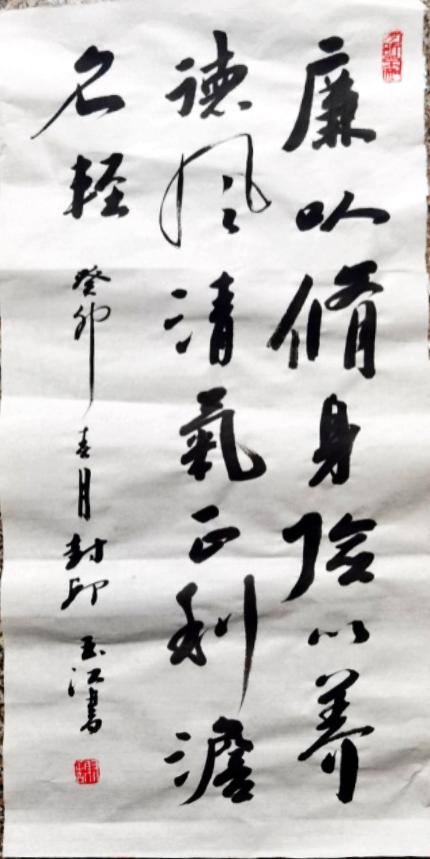 廉以脩身险以养
德风清氣正利澹
名軽 癸卯春月封 玉江書